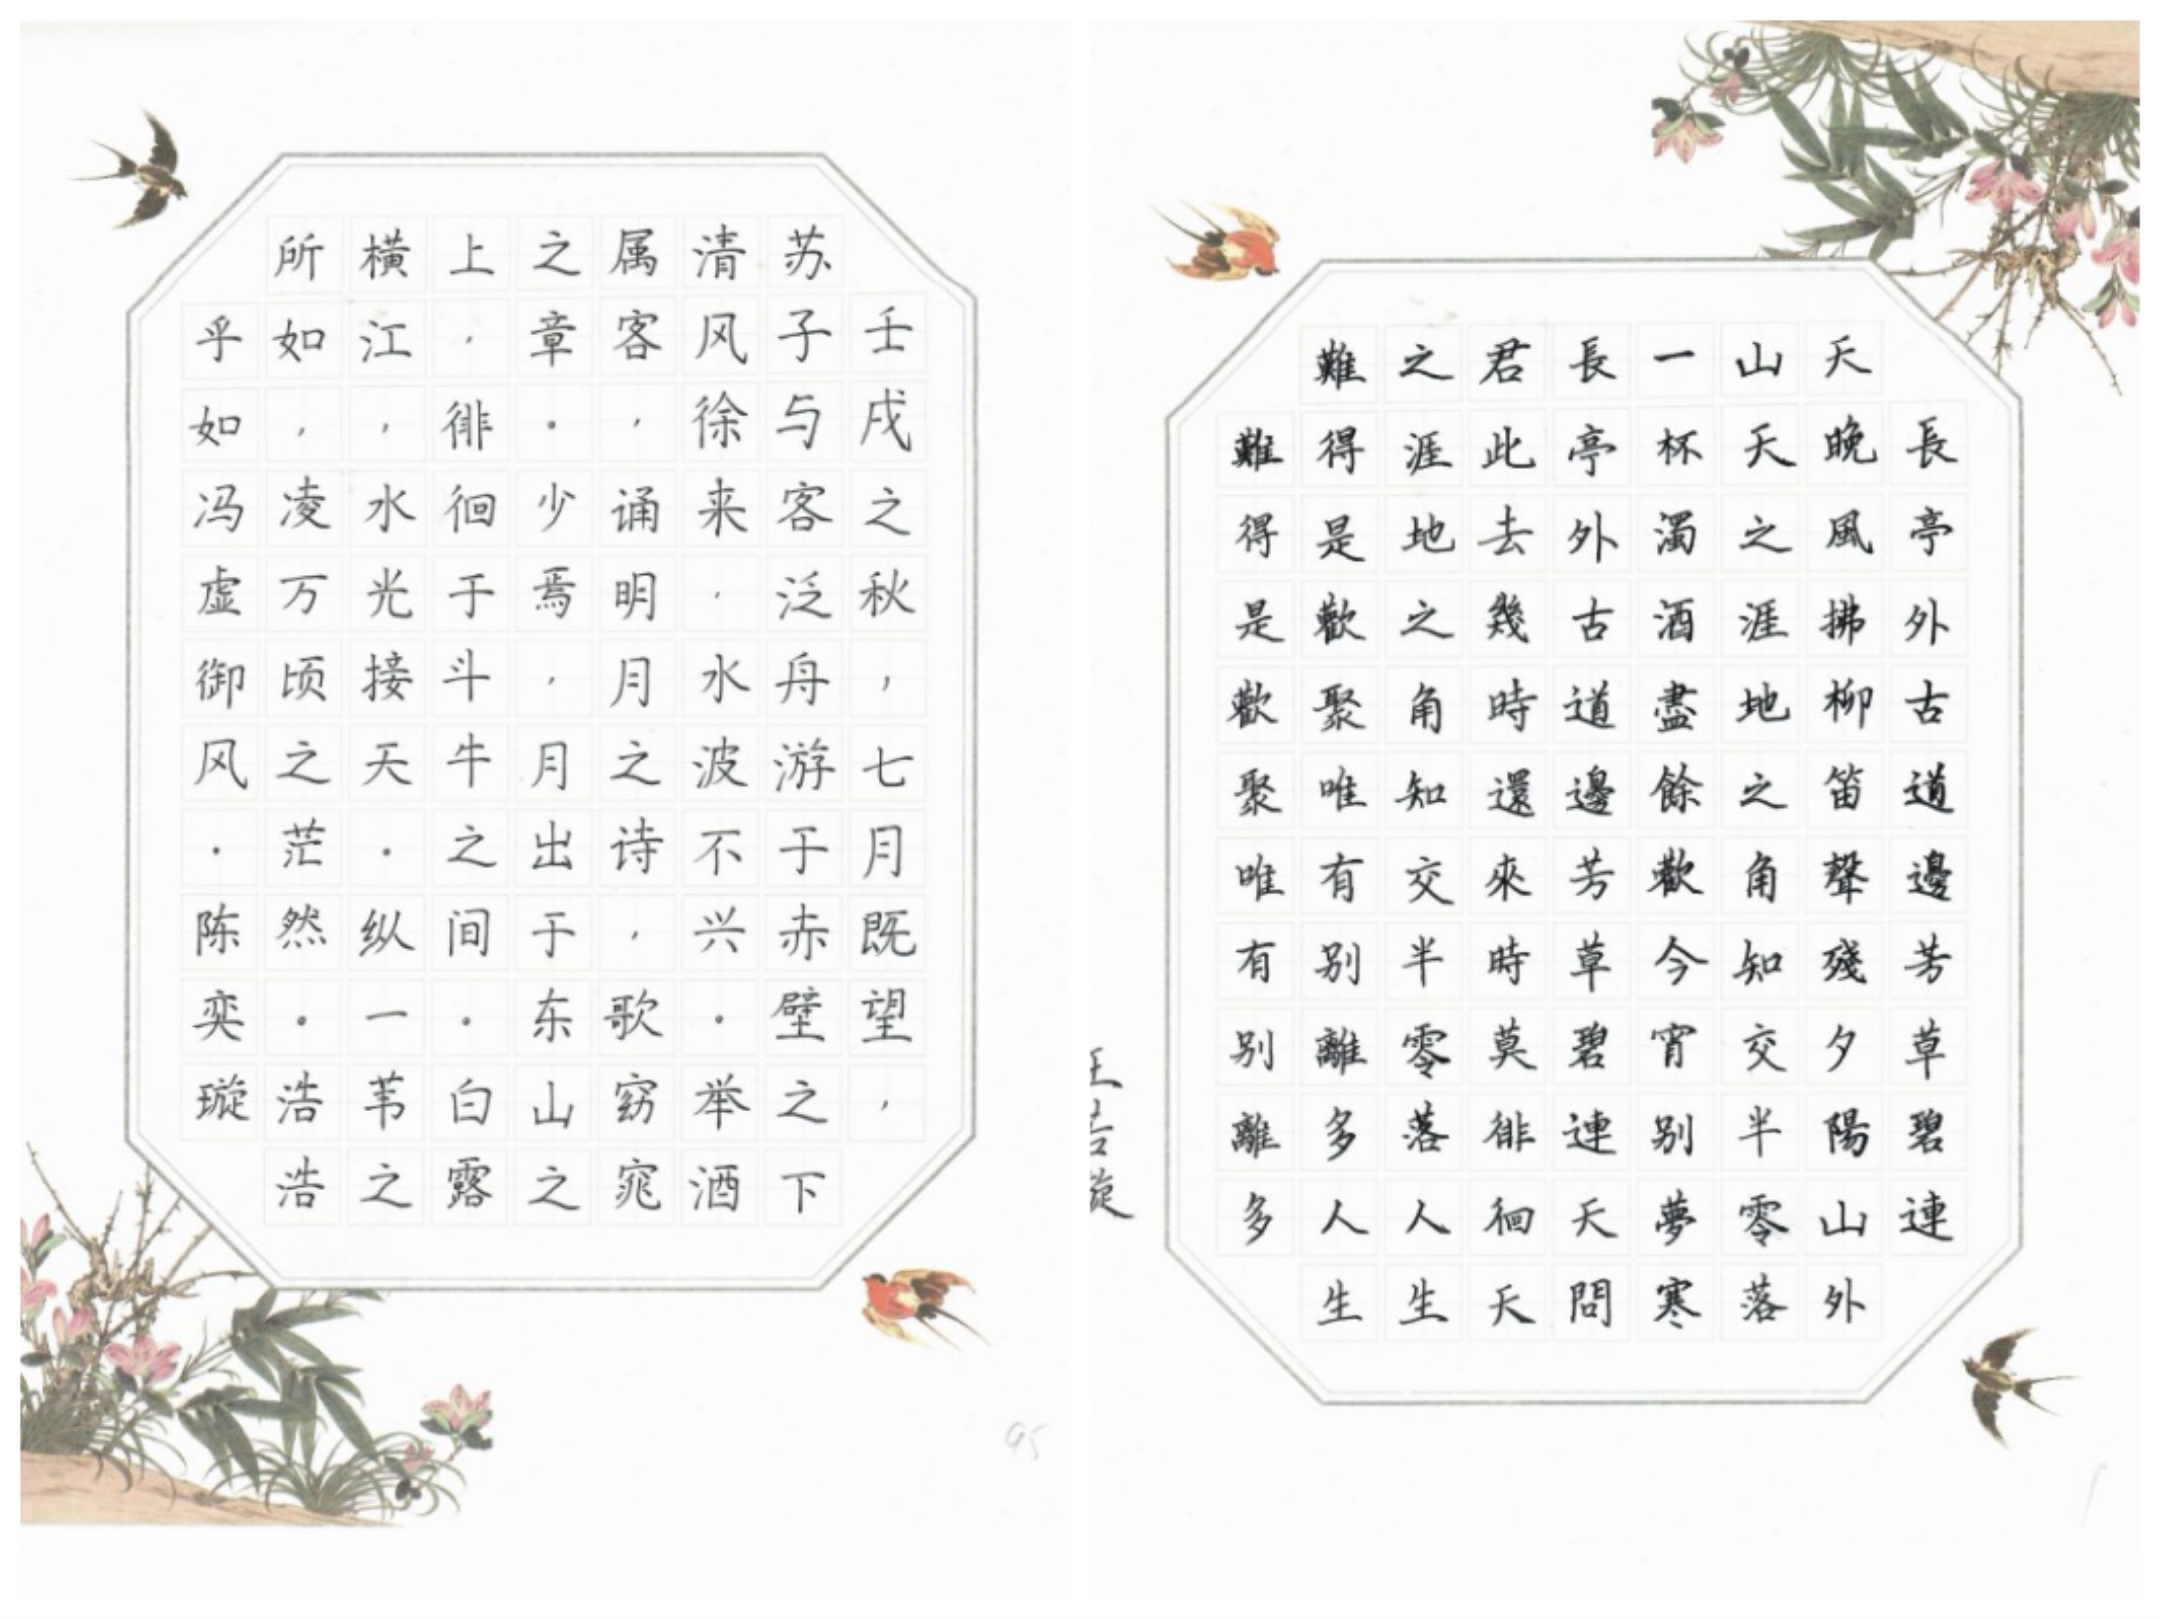 壬戌之秋，七月既望，
苏子与客泛舟游于赤壁之下
清风徐来，水波不兴。举酒
属客，诵明月之诗，歌窈窕
之章。少焉，月出于东山之
上，徘徊于斗牛之间。白露
横江，水光接天。纵一苇之
所如，凌万顷之茫然。浩浩
乎如冯虚御风。陈奕璇
95
長亭外古道邊芳草碧連
天晚風拂柳笛聲殘夕陽山外
山天之涯地之角知交半零落
一杯濁酒盡餘歡今宵别夢寒
長亭外古道邊芳草碧連天問
君此去幾時還來時莫徘徊天
之涯地之角知交半零落人生
難得是歡聚唯有别離多人生
難得是歡聚唯有别離多